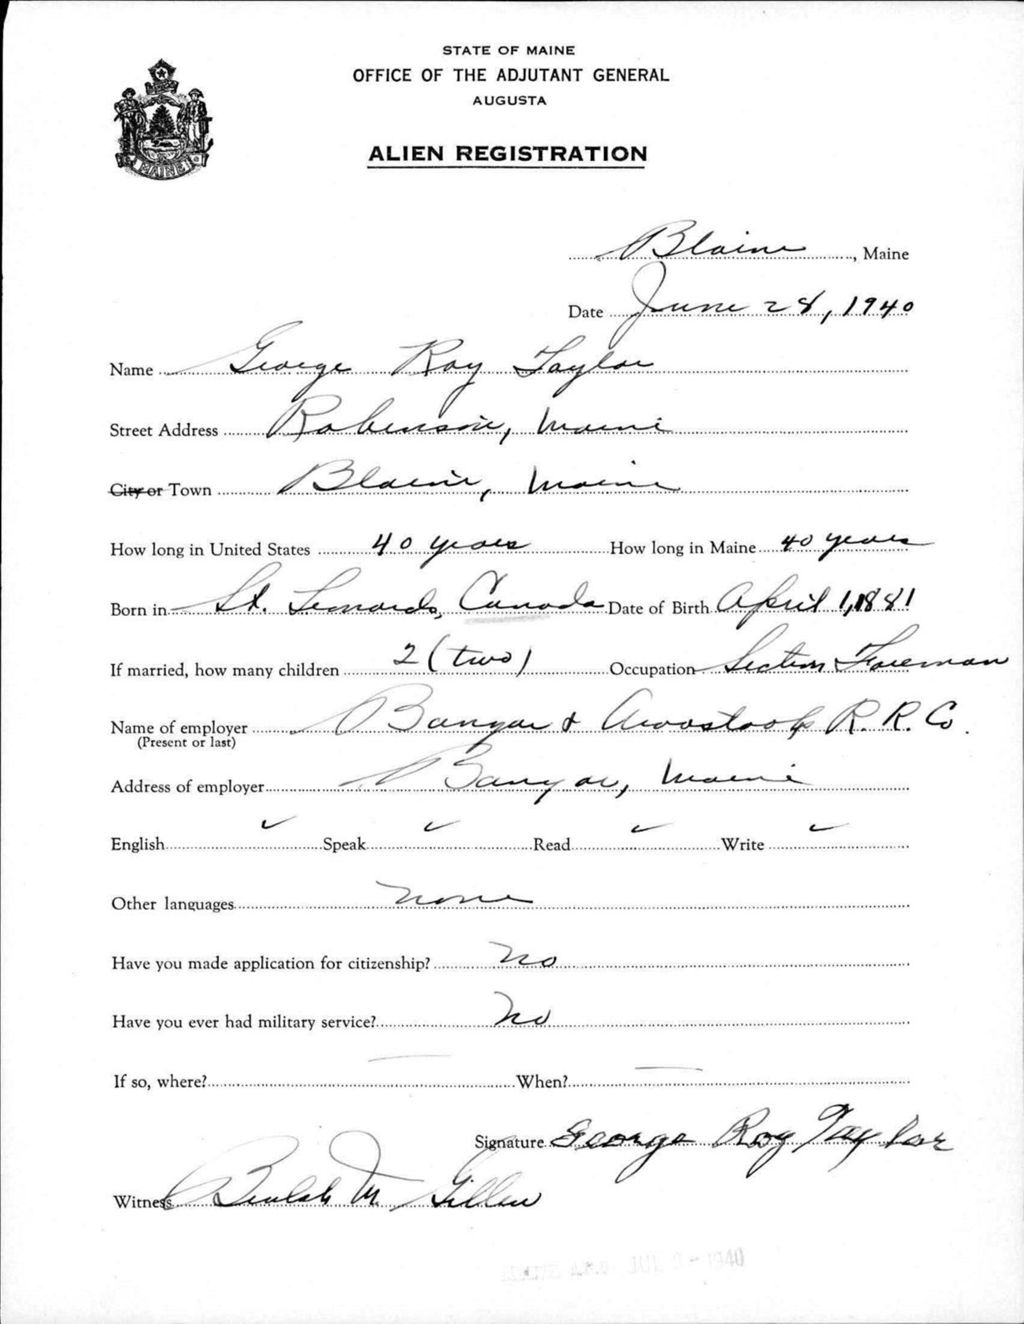 STATE OF MAINE
OFFICE OF THE ADJUTANT GENERAL
AUGUSTA
ALIEN REGISTRATION
MAINE
Blaine, Maine
Date June 28, 1940
Name George Roy Taylor
Street Address Robinson, Maine
City or Town Blaine, Maine
How long in United States 40 years How long in Maine 40 years
Born in St. Leonards, Canada Date of Birth April 1, 1881
If married, how many children 2 (two) Occupation Section Foreman
Name of employer Bangor & Aroostook R. R. Co.
(Present or last)
Address of employer Bangor, Maine
English ✓ Speak ✓ Read ✓ Write ✓
Other languages none
Have you made application for citizenship? No
Have you ever had military service? No
If so, where? — When? —
Signature George Roy Taylor
Witness Beulah M. Gillen
A.G.O. JUL 9 - 1940